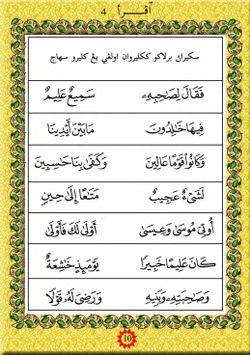 اقرأ 4
سكيراڽ برلاكو ككليروان اولڠي يڠ كليرو سهاج
فَقَالَ لِصَاحِبِهِ سَمِيعٌ عَلِيمٌ
فِيهَا خَالِدُونَ مَابَيْنَ أَيْدِينَا
وَكَانُوا قَوْمًا عَالِينَ وَكَفَىٰ بِنَا حَاسِبِينَ
لَشَىْءٌ عَجِيبٌ مَتَعًا إِلَىٰ حِينٍ
أُوتِيَ مُوسَىٰ وَعِيسَىٰ أَوْلَىٰ لَكَ فَأَوْلَىٰ
كَانَ عَلِيمًا خَبِيرًا يَوْمَئِذٍ خَشِعَةٌ
وَصَاحِبَتِهِ وَبَنِيهِ وَرَضِىَ لَهُ قَوْلًا
10